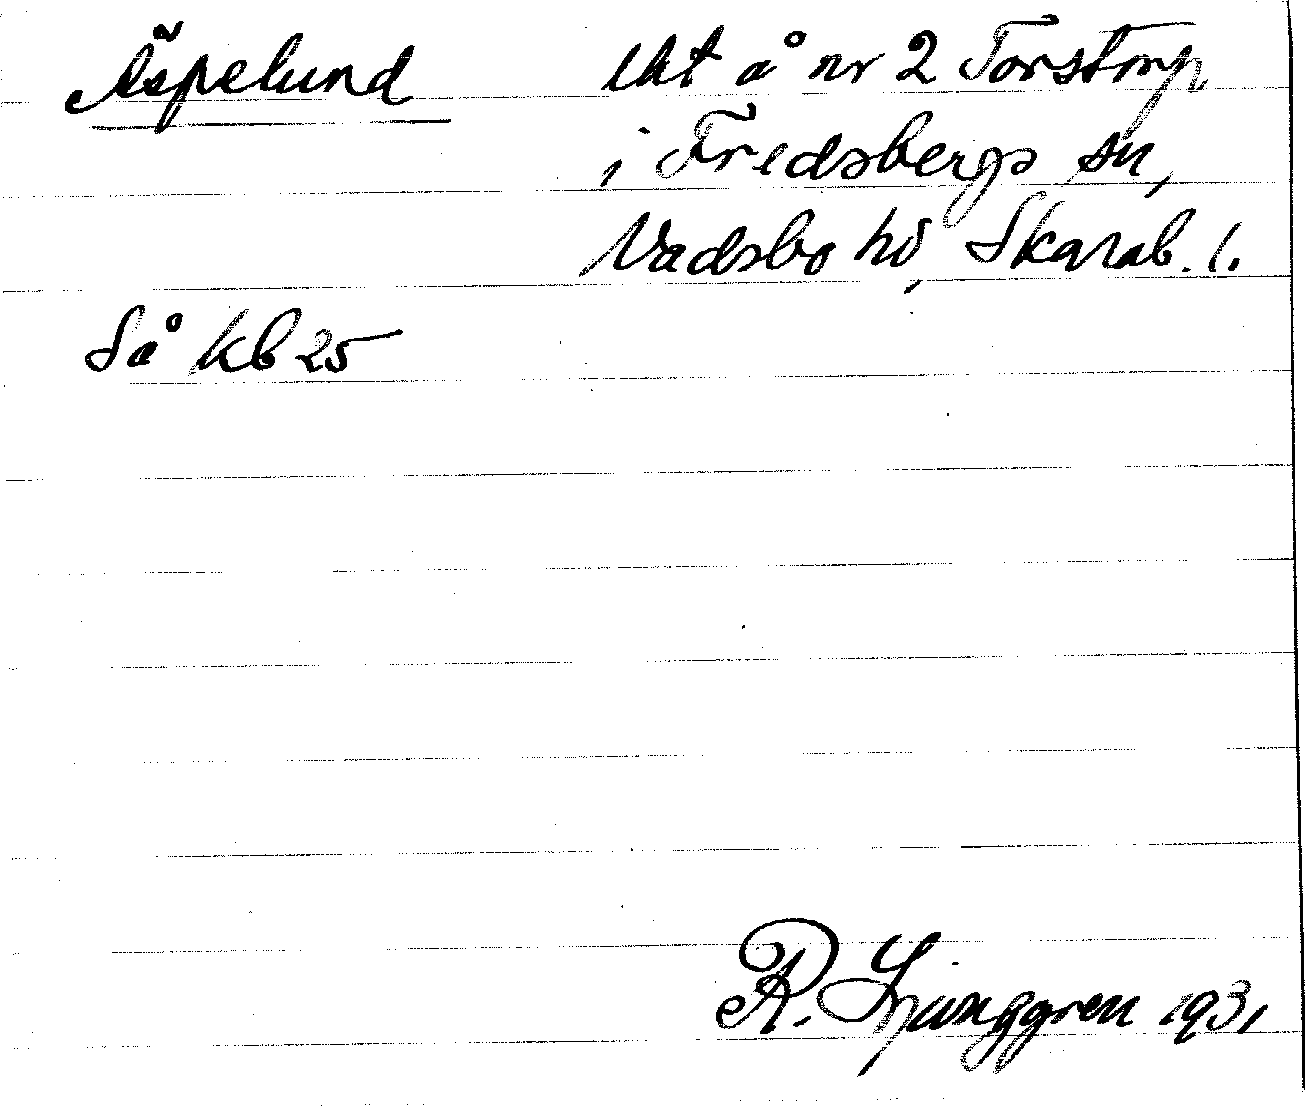 Äspelund
lht å nr 2 Torstorp
i Fredsbergs sn,
Vadsbo hd, Skarab. l.
Så kb 25
R. Ljunggren 1931